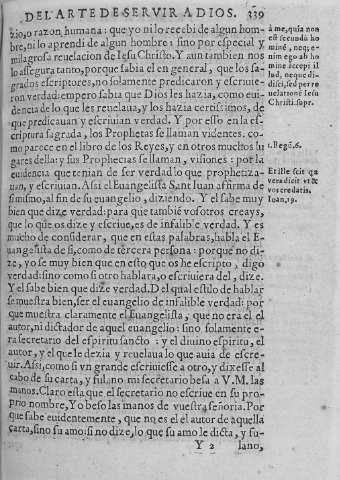 DEL ARTE DE SERVIR A DIOS. 339
zio, o razon humana: que yo ni lo recebi de algun hom-
bre, ni lo aprendi de algun hombre: sino por especial y
milagrosa reuelacion de Iesu Christo. Y aun tambien nos
lo assegura tanto, porque sabia el en general, que los sa-
grados escriptores, no solamente predicaron y escriuie-
ron verdad: empero sabia que Dios les hazia, como eui-
dencia de lo que les reuelaua, y los hazia certissimos, de
que predicauan y escriuian verdad. Y por esso en la es-
criptura sagrada, los Prophetas se llaman videntes. co-
mo parece en el libro de los Reyes, y en otros muchos lu
gares della: y sus Prophecias se llaman, visiones: por la
euidencia que tenian de ser verdad lo que prophetiza-
uan, y escriuian. Assi el Euangelista Sant Iuan affirma de
si mismo, al fin de su euangelio, diziendo. Y el sabe muy
bien que dize verdad: para que tambié vosotros creays,
que lo que os dize y escriue, es de infalible verdad. Y es
mucho de considerar, que en estas palabras, habla el E-
uangelista de si, como de tercera persona: porque no di-
ze, yo se muy bien que en esto que os he escripto, digo
verdad: sino como si otro hablara, o escriuiera del, dize.
Y el sabe bien que dize verdad. Del qual estilo de hablar
se muestra bien, ser el euangelio de infalible verdad: por
que muestra claramente el Euangelista, que no era el el
autor, ni dictador de aquel euangelio: sino solamente e-
ra secretario del spiritu sancto: y el diuino espiritu, el
autor, y el que le dezia y reuelaua lo que auia de escre-
uir. Assi, como si vn grande escriuiesse a otro, y dixesse al
cabo de su carta, y fulano mi secretario besa a V.M. las
manos. Claro esta que el secretario no escriue en su pro-
prio nombre, Yo beso las manos de vuestra señoria. Por
que sabe euidentemente, que no es el el autor de aquella
carta, sino su amo: si no dize, lo que su amo le dicta, y fu-
Y 2 lano,
à me, quia non
est secundũ ho
minẽ, neq; e-
nim ego ab ho
mine accepi il
lud, neque di-
dici, sed per re
uelationẽ Iesu
Christi. supr.
1. Regũ, 6.
Et ille scit qa
vera dicit vt &
vos credatis.
Ioan, 19.